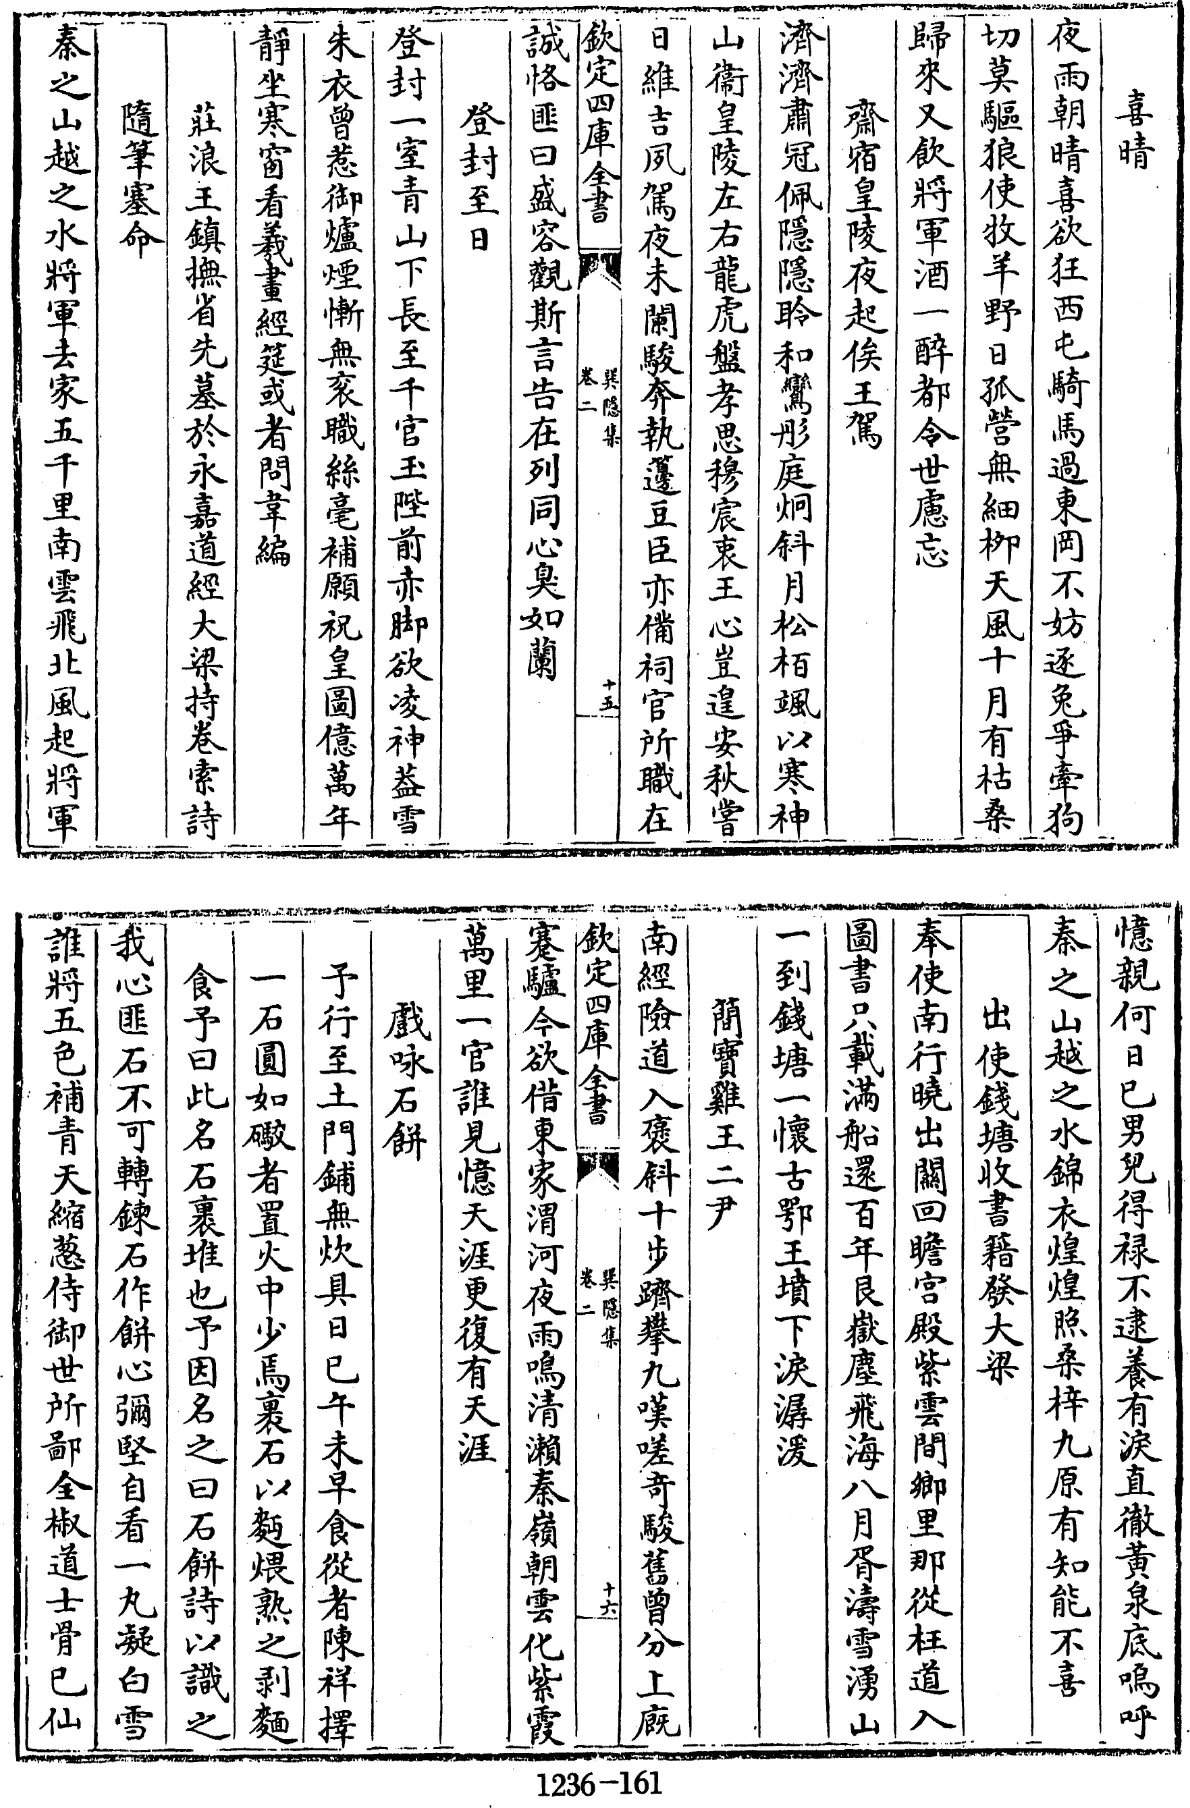 喜晴
夜雨朝晴喜欲狂西屯騎馬過東岡不妨逐兔爭牽狗
切莫驅狼使牧羊野日孤營無細桞天風十月有枯桑
歸來又飲將軍酒一醉都令世慮忘
齋宿皇陵夜起俟王駕
濟濟肅冠佩隱隱聆和鸞彤庭炯斜月松栢颯以寒神
山衞皇陵左右龍虎盤孝思穆宸衷王心豈遑安秋嘗
日維吉夙駕夜未闌駿奔執籩豆臣亦備祠官所職在
欽定四庫全書
巽隱集
卷二
十五
誠恪匪曰盛容觀斯言告在列同心臭如蘭
登封至日
登封一室青山下長至千官玉陛前赤脚欲凌神葢雪
朱衣曾惹御爐煙慚無衮職絲毫補願祝皇圖億萬年
靜坐寒窗看羲畫經筵或者問韋編
莊浪王鎮撫省先墓於永嘉道經大梁持卷索詩
隨筆塞命
秦之山越之水將軍去家五千里南雲飛北風起將軍
憶親何日已男兒得禄不逮養有淚直徹黃泉底嗚呼
秦之山越之水錦衣煌煌照桑梓九原有知能不喜
出使錢塘收書籍發大梁
奉使南行曉出關回瞻宮殿紫雲間鄉里那從枉道入
圖書只載滿船還百年艮嶽塵飛海八月胥濤雪湧山
一到錢塘一懷古鄂王墳下淚潺湲
簡寶雞王二尹
南經險道入褒斜十步躋攀九嘆嗟奇駿舊曾分上廐
欽定四庫全書
巽隱集
卷二
十六
蹇驢今欲借東家渭河夜雨鳴清瀨秦嶺朝雲化紫霞
萬里一官誰見憶天涯更復有天涯
戲咏石餅
予行至土門鋪無炊具日已午未早食從者陳祥擇
一石圓如礮者置火中少焉裹石以麪煨熟之剥麵
食予曰此名石裹堆也予因名之曰石餅詩以識之
我心匪石不可轉鍊石作餅心彌堅自看一丸凝白雪
誰將五色補青天縮葱侍御世所鄙全椒道士骨已仙
1236-161